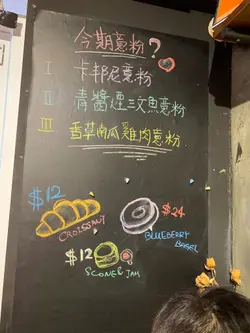 今期意粉?
I 卡邦尼意粉
II 青醬煙三文魚意粉
III 香草南瓜雞肉意粉
$12
CROISSANT
$24
BLUEBERRY
BAGEL
$12
SCONE & JAM